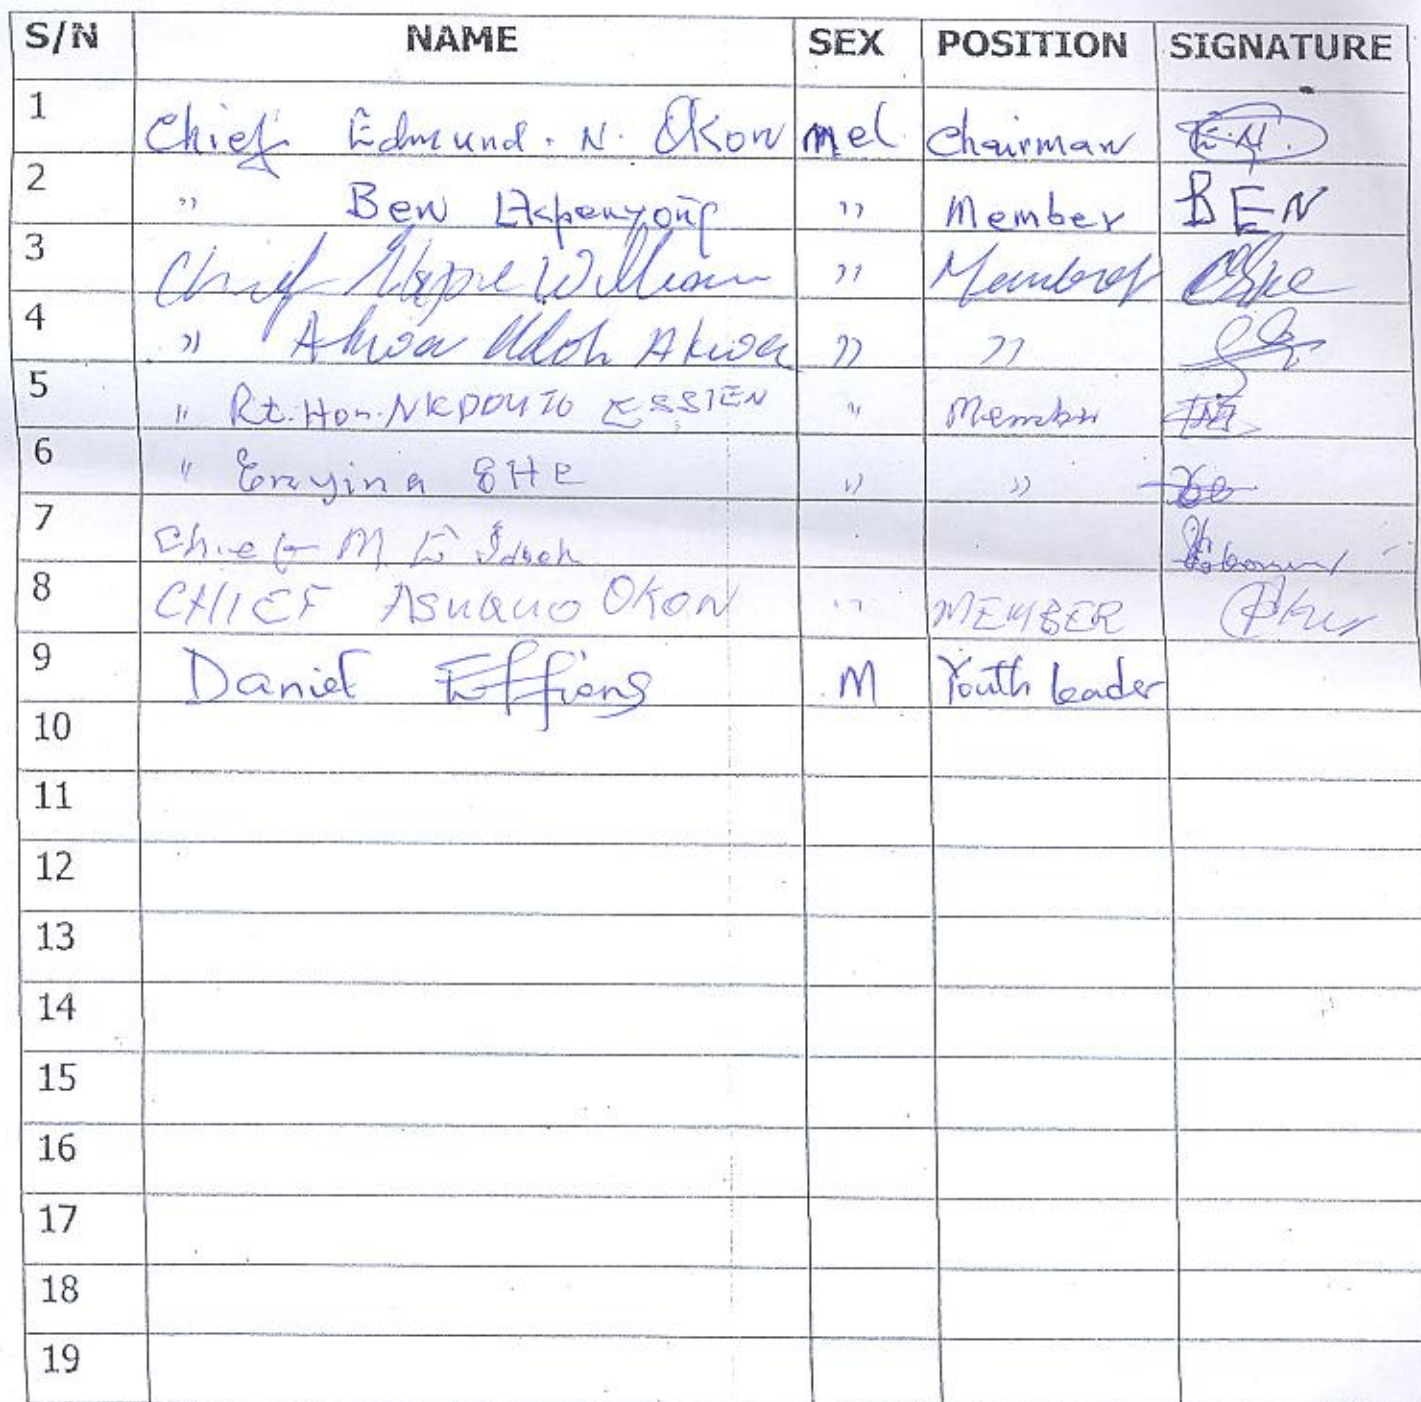 S/N NAME SEX POSITION SIGNATURE
1 Chief Edmund. N. Okon mel Chairman E.N.
2 " Ben " Member BEN
3 Chief William " Member
4 " Akwa Udoh Akwa " "
5 " Rt. Hon. NKPOUTO ESSIEN " Member
6 " Enyina " "
7 Chief M. E
8 CHIEF ASUQUO OKON " MEMBER
9 Daniel Effiong M Youth leader
10
11
12
13
14
15
16
17
18
19